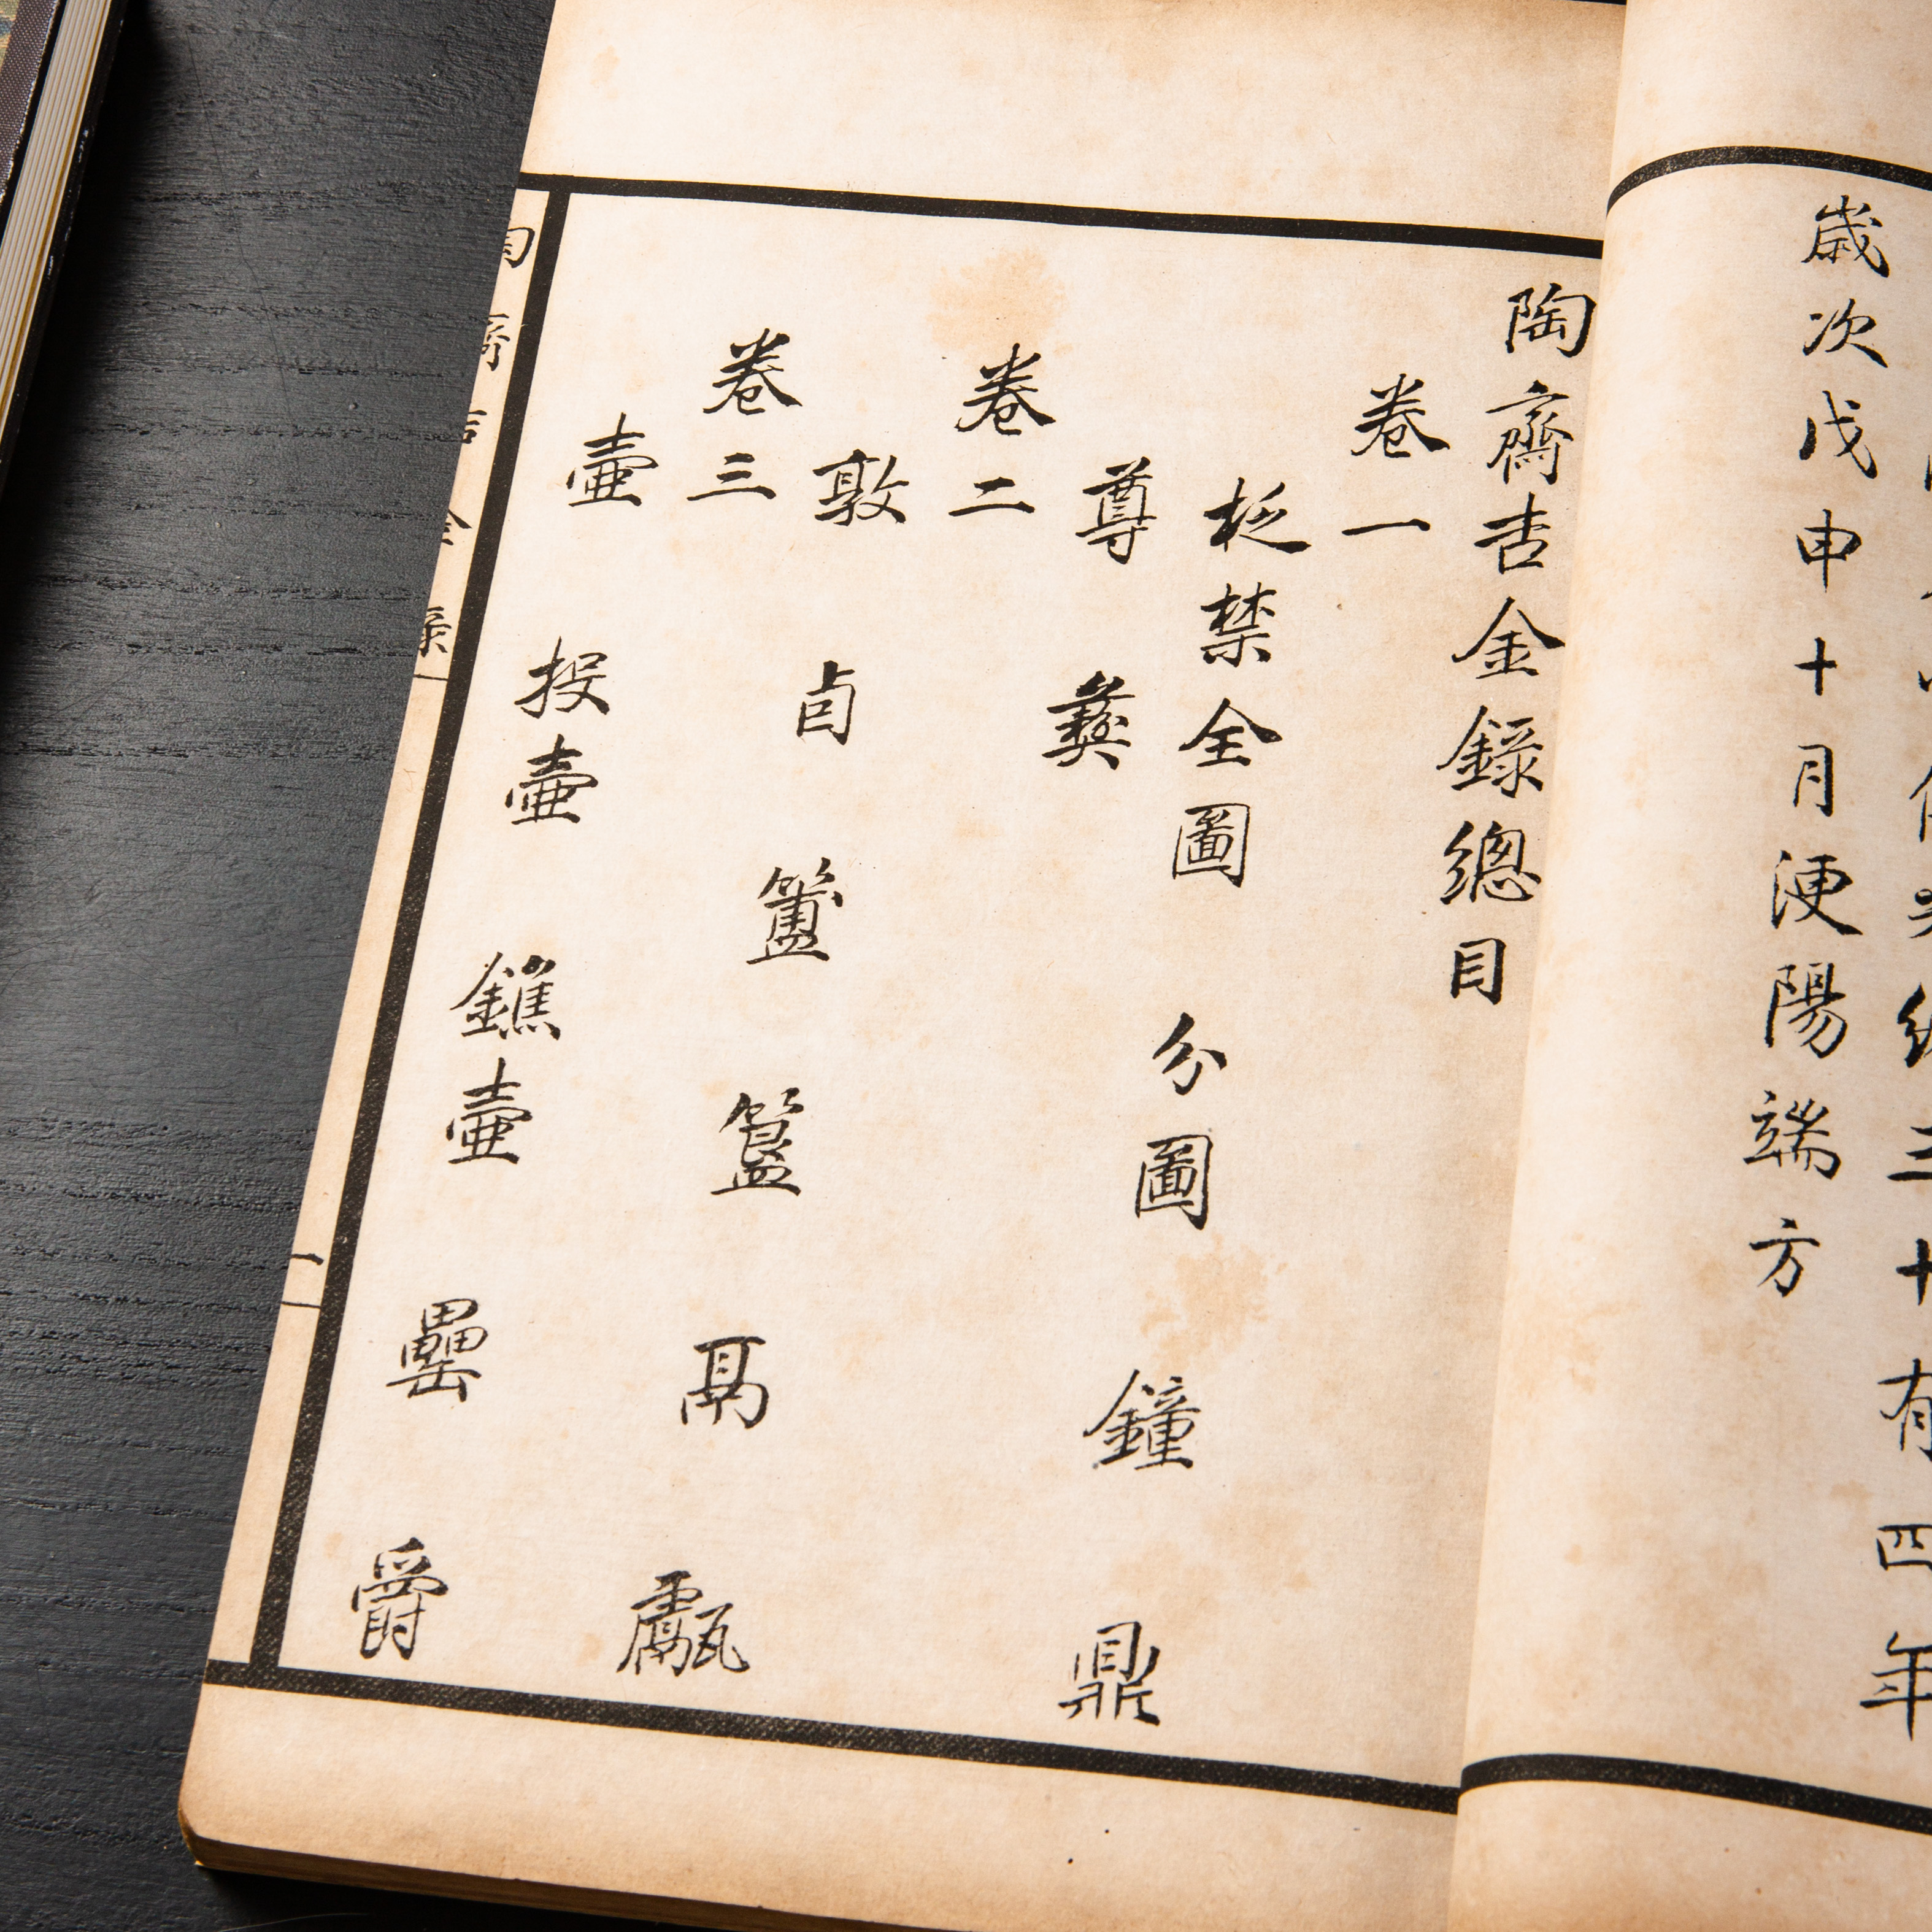 三十有四年
歲次戊申十月浭陽端方
陶齋吉金錄總目
卷一
柉禁全圖 分圖 鐘 鼎
尊 彝
卷二
敦 卣 簠 簋 鬲 甗
卷三
壺 投壺 鐎壺 罍 爵
陶齋吉金錄 一